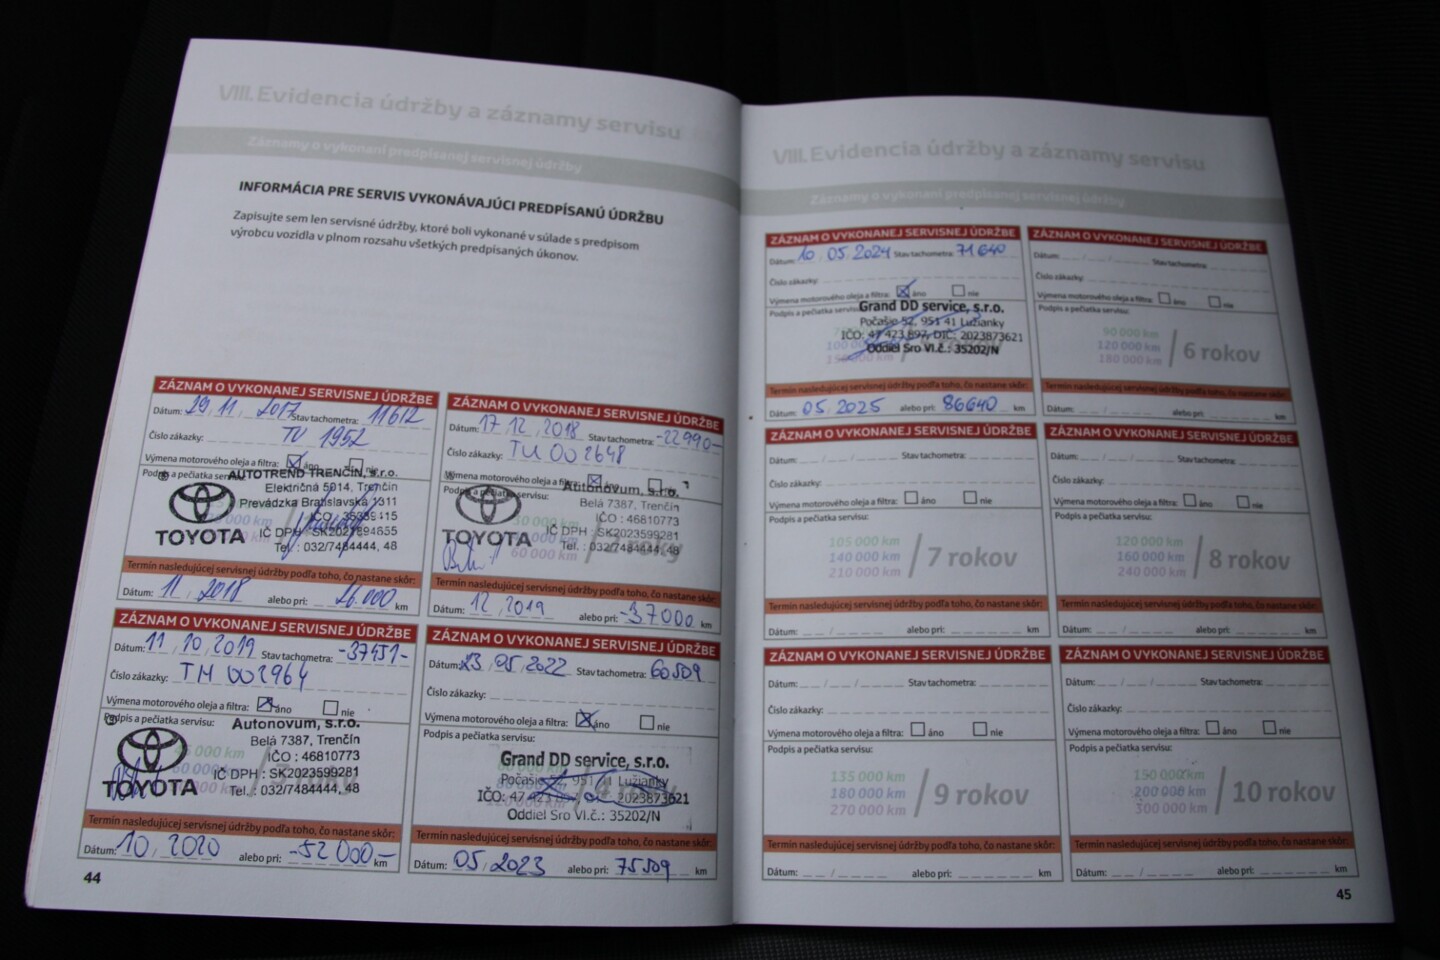 VIII. Evidencia údržby a záznamy servisu
Záznamy o vykonaní predpísanej servisnej údržby
INFORMÁCIA PRE SERVIS VYKONÁVAJÚCI PREDPÍSANÚ ÚDRŽBU
Zapisujte sem len servisné údržby, ktoré boli vykonané v súlade s predpisom
výrobcu vozidla v plnom rozsahu všetkých predpísaných úkonov.
ZÁZNAM O VYKONANEJ SERVISNEJ ÚDRŽBE
Dátum: 29 / 11 / 2017 Stav tachometra: 11612
Číslo zákazky: TU 1952
Výmena motorového oleja a filtra: áno nie
Podpis a pečiatka servisu:
AUTOTREND TRENČÍN, s.r.o.
Električná 5014, Trenčín
Prevádzka Bratislavská 1311
IČO
IČ DPH : SK2021894655
Tel. : 032/7484444, 48
TOYOTA
Termín nasledujúcej servisnej údržby podľa toho, čo nastane skôr:
Dátum: 11 / 2018 alebo pri: 26.000 km
ZÁZNAM O VYKONANEJ SERVISNEJ ÚDRŽBE
Dátum: 17 / 12 / 2018 Stav tachometra: -22990-
Číslo zákazky: TU 002648
Výmena motorového oleja a filtra: áno
Podpis a pečiatka servisu:
Autonovum, s.r.o.
Belá 7387, Trenčín
IČO : 46810773
IČ DPH : SK2023599281
Tel. : 032/7484444, 48
TOYOTA
30 000 km
60 000 km
/ 2 roky
Termín nasledujúcej servisnej údržby podľa toho, čo nastane skôr:
Dátum: 12 / 2019 alebo pri: -37000 km
ZÁZNAM O VYKONANEJ SERVISNEJ ÚDRŽBE
Dátum: 11 / 10 / 2019 Stav tachometra: -37451-
Číslo zákazky: TM 002964
Výmena motorového oleja a filtra: áno nie
Podpis a pečiatka servisu:
Autonovum, s.r.o.
Belá 7387, Trenčín
IČO : 46810773
IČ DPH : SK2023599281
Tel. : 032/7484444, 48
TOYOTA
45 000 km
60 000 km
/ 3 roky
Termín nasledujúcej servisnej údržby podľa toho, čo nastane skôr:
Dátum: 10 / 2020 alebo pri: -52 000- km
ZÁZNAM O VYKONANEJ SERVISNEJ ÚDRŽBE
Dátum: 23 / 05 / 2022 Stav tachometra: 60509
Číslo zákazky:
Výmena motorového oleja a filtra: áno nie
Podpis a pečiatka servisu:
Grand DD service, s.r.o.
Počašie 52, 951 41 Lužianky
IČO: 47 423 2023873621
Oddiel Sro Vl.č.: 35202/N
Termín nasledujúcej servisnej údržby podľa toho, čo nastane skôr:
Dátum: 05 / 2023 alebo pri: 75509 km
44
VIII. Evidencia údržby a záznamy servisu
Záznamy o vykonaní predpísanej servisnej údržby
ZÁZNAM O VYKONANEJ SERVISNEJ ÚDRŽBE
Dátum: 10 / 05 / 2024 Stav tachometra: 71640
Číslo zákazky:
Výmena motorového oleja a filtra: áno nie
Podpis a pečiatka servisu:
Grand DD service, s.r.o.
Počašie 52, 951 41 Lužianky
IČO: 47 423 897, DIČ: 2023873621
Oddiel Sro Vl.č.: 35202/N
Termín nasledujúcej servisnej údržby podľa toho, čo nastane skôr:
Dátum: 05 / 2025 alebo pri: 86640 km
ZÁZNAM O VYKONANEJ SERVISNEJ ÚDRŽBE
Dátum: / / Stav tachometra:
Číslo zákazky:
Výmena motorového oleja a filtra: áno nie
Podpis a pečiatka servisu:
90 000 km
120 000 km
180 000 km
/ 6 rokov
Termín nasledujúcej servisnej údržby podľa toho, čo nastane skôr:
Dátum: / alebo pri: km
ZÁZNAM O VYKONANEJ SERVISNEJ ÚDRŽBE
Dátum: / / Stav tachometra:
Číslo zákazky:
Výmena motorového oleja a filtra: áno nie
Podpis a pečiatka servisu:
105 000 km
140 000 km
210 000 km
/ 7 rokov
Termín nasledujúcej servisnej údržby podľa toho, čo nastane skôr:
Dátum: / alebo pri: km
ZÁZNAM O VYKONANEJ SERVISNEJ ÚDRŽBE
Dátum: / / Stav tachometra:
Číslo zákazky:
Výmena motorového oleja a filtra: áno nie
Podpis a pečiatka servisu:
120 000 km
160 000 km
240 000 km
/ 8 rokov
Termín nasledujúcej servisnej údržby podľa toho, čo nastane skôr:
Dátum: / alebo pri: km
ZÁZNAM O VYKONANEJ SERVISNEJ ÚDRŽBE
Dátum: / / Stav tachometra:
Číslo zákazky:
Výmena motorového oleja a filtra: áno nie
Podpis a pečiatka servisu:
135 000 km
180 000 km
270 000 km
/ 9 rokov
Termín nasledujúcej servisnej údržby podľa toho, čo nastane skôr:
Dátum: / alebo pri: km
ZÁZNAM O VYKONANEJ SERVISNEJ ÚDRŽBE
Dátum: / / Stav tachometra:
Číslo zákazky:
Výmena motorového oleja a filtra: áno nie
Podpis a pečiatka servisu:
150 000 km
200 000 km
300 000 km
/ 10 rokov
Termín nasledujúcej servisnej údržby podľa toho, čo nastane skôr:
Dátum: / alebo pri: km
45